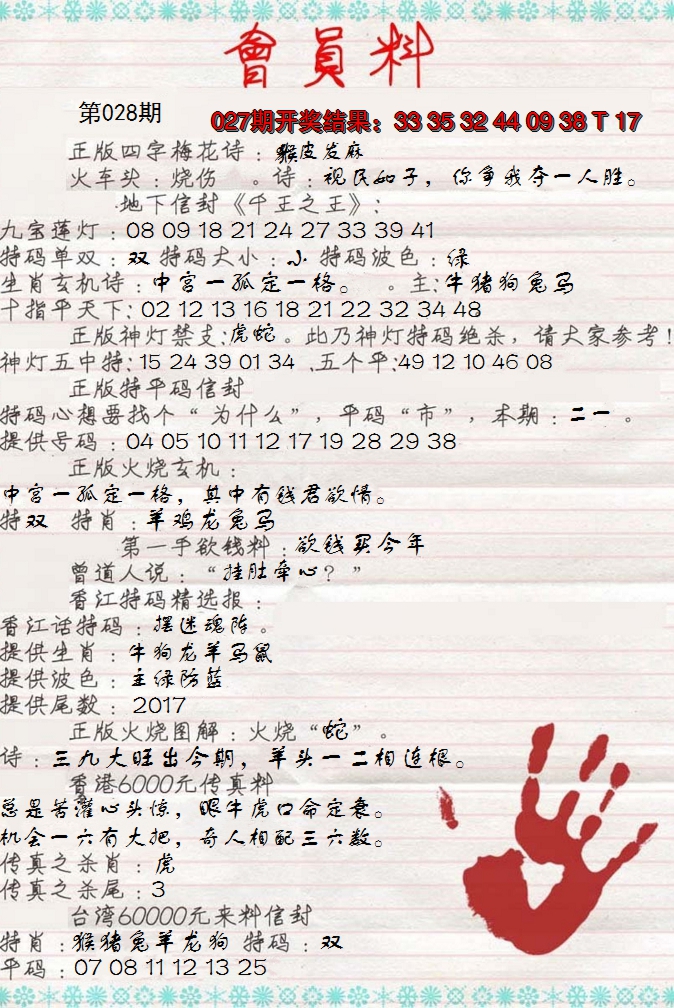 會員料
第028期
027期开奖结果：33 35 32 44 09 38 T 17
正版四字梅花诗：猴皮发麻
火车头：烧伤 。诗：视民如子，你争我夺一人胜。
地下信封《千王之王》：
九宝莲灯：08 09 18 21 24 27 33 39 41
特码单双：双 特码大小：小 特码波色：绿
生肖玄机诗：中宫一孤定一格。 。主：牛猪狗兔马
十指平天下：02 12 13 16 18 21 22 32 34 48
正版神灯禁支：虎蛇。此乃神灯特码绝杀，请大家参考！
神灯五中特：15 24 39 01 34 .五个平：49 12 10 46 08
正版特平码信封
特码心想要找个“为什么”，平码“市”，本期：二一 。
提供号码：04 05 10 11 12 17 19 28 29 38
正版火烧玄机：
中宫一孤定一格，其中有钱君欲情。
特双 特肖：羊鸡龙兔马
第一手欲钱料：欲钱买今年
曾道人说：“挂肚牵心？”
香江特码精选报：
香江话特码：摆迷魂阵。
提供生肖：牛狗龙羊马鼠
提供波色：主绿防蓝
提供尾数： 2017
正版火烧图解：火烧“蛇”。
诗：三九大旺出今期，羊头一二相连根。
香港6000元传真料
总是苦灌心头惊，眼牛虎口命定衰。
机会一六有大把，奇人相配三六数。
传真之杀肖：虎
传真之杀尾：3
台湾60000元来料信封
特肖：猴猪兔羊龙狗 特码：双
平码：07 08 11 12 13 25